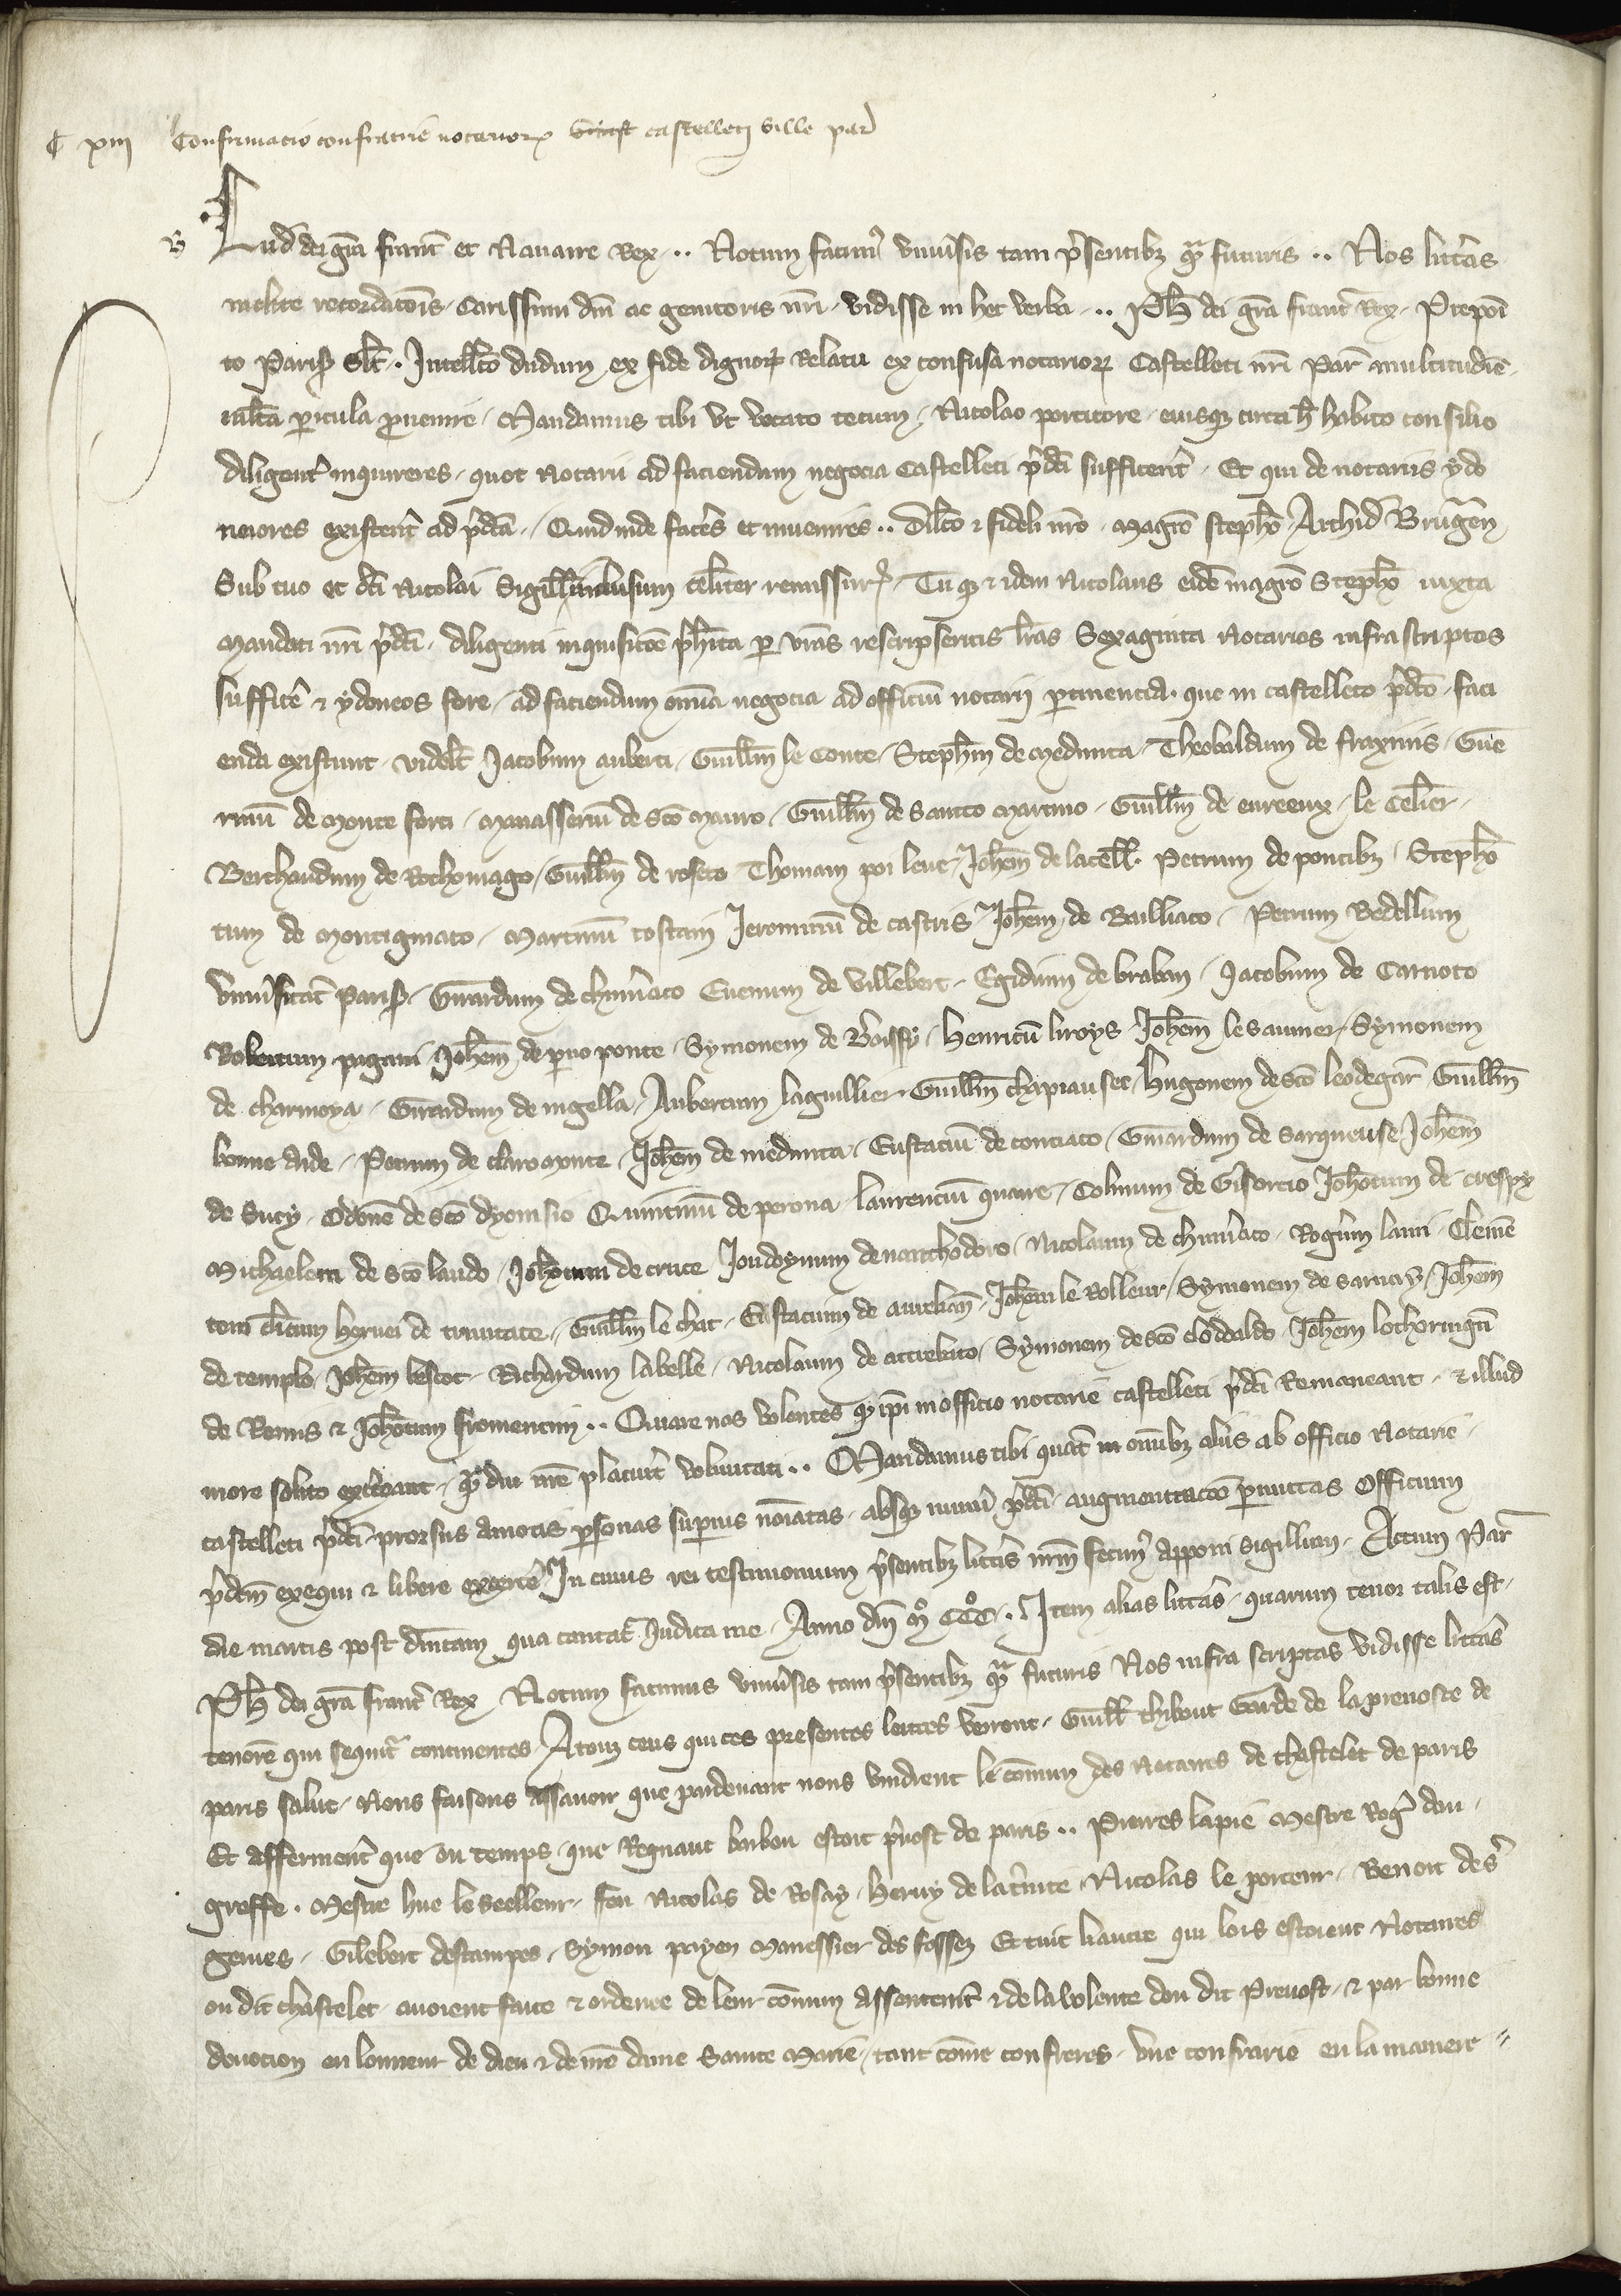 C xiii Confirmacio confratrie notarior castelleti ville par
B Lud dei gra franc et Nauarre Rex Notum facim vniusis tam psentibz qm futuris Nos litras
inclite recordacois carissimi dni ac genitoris nri vidisse in hec verba Ph dei gra franc Rex Preposi
to Paris salt Intellco dudum ex fide dignor Relatu ex confusa notarior Castelleti nri Par multitudie
multa picula puenire Mandamus tibi vt vocato tecum Nicolao porticore eiusq circa h habito consilio
diligent inquireres quot Notarii ad faciendum negocia castelleti pdci sufficerent Et qui de notariis ydo
neiores existerent ad pdca Quid inde faceres et inuenires dilco & fideli nro magro stepho Archid Brugen
Sub tuo et dci Nicolai Sigillis inclusum celiter remissur Tuq & idem Nicolaus eidem magro Stepho iuxta
mandati nri pdci diligenti inquisicoe phita p vras rescripseritis lras Sexaginta Notarios infrascriptos
sufficere & ydoneos fore ad faciendum omnia negocia ad officium notarii ptinencia que in castelleto pdco faci
enda existunt videlt Jacobum auberti Guillm le Conte Stephm de medunta Theobaldum de fraxinis Gue
rinu de monte forti Manasseriu de sco mauro Guillm de sancto martino Guillm de eureeux le Celier
Berthaudum de Rothomago Guillm de roseto Thomam poi leue Johem de latell Petrum de pontibz Stepho
tum de montigniaco Martinu tostain Jeronimu de castris Johem de Bailliaco Petrum Bedellum
vniusitat Paris Girardum de chimaco Euenum de villebert Egidium de braban Jacobum de Carnoto
Robertum pagani Johem de puo ponte Symonem de Boissy Henricu liroys Johem le saunier Symonem
de charmoya Girardum de nigella Aubertum laguillier Guillm chapiau sec Hugonem de sco leodegar Guillm
bonne aide Petrum de claromonte Johem de medunta Eustaciu de conciaco Girardum de sarqueuse Johem
de Sucy Odone de sco dyonisio Quintinu de perona laurenciu quarre Colinum de Gisorcio Johotum de crespy
Michaelem de sco laudo Johotum de cruce Joudoynum de nanthodoro Nicolaum de chimaco Rogum lami Cleme
tem dictum heruei de trinitate Guillm le chat Eustacium de aurelian Johem le Rolleur Symonem de saruay Johem
de templo Johem lescot Richardum labelle Nicolaum de attrebato Symonem de sco clodoaldo Johem lothoringi
de Remis & Johotum fromentin Quare nos volentes q ipi in officio notarie castelleti pdci Remaneant & illud
more solito exceant qm diu nre placuit voluntati Mandamus tibi quat in omibz aliis ab officio Notarie
castelleti pdci prorsus amotis psonas supius noiatas absq numi pdci augmentacoe pmittas officium
pdcm exequi & libere exercere In cuius rei testimonium psentibz litris nrm fecim apponi sigillum Actum Par
die martis post dnicam qua cantat Judica me Anno dni m ccc Item alias litras quarum tenor talis est
Ph dei gra franc Rex Notum facimus vniusis tam psentibz qm futuris Nos infra scriptas vidisse litras
tenore qui sequit continentes A touz ceus qui ces presentes lettres verront Guill thybout Garde de la preuoste de
paris salut Nous faisons assauoir que pardeuant nous vindrent le comun des Notaires de chastelet de paris
Et affermerent que ou temps que Regnaut barbou estoit puost de paris Pierres lapie Mestre Rog dou
greffe Mestre hue le seelleur feu Nicolas de Rosay Heruy de la tinite Nicolas le porteur Benoit de s
geruies Gilebert destampes Symon payen Manessier des fossez Et tuit li autre qui lors estoient Notaires
ou dit chastelet auoient faite & ordenee de leur comun assentemt & de la volente dou dit Preuost & par bonne
deuocion en lonneur de dieu & de nre dame Sainte Marie tant come confreres vne confrarie en la maniere